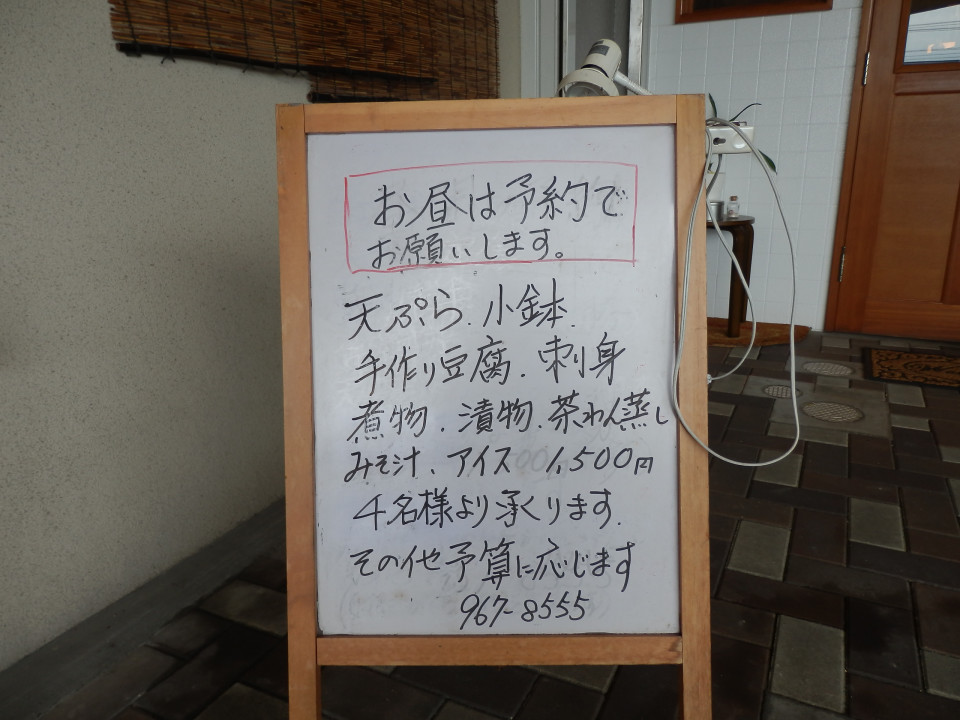 お昼は予約で
お願いします。
天ぷら.小鉢.
手作り豆腐.刺身
煮物.漬物.茶わん蒸し
みそ汁、アイス 1,500円
4名様より承ります.
その他予算に応じます
967-8555